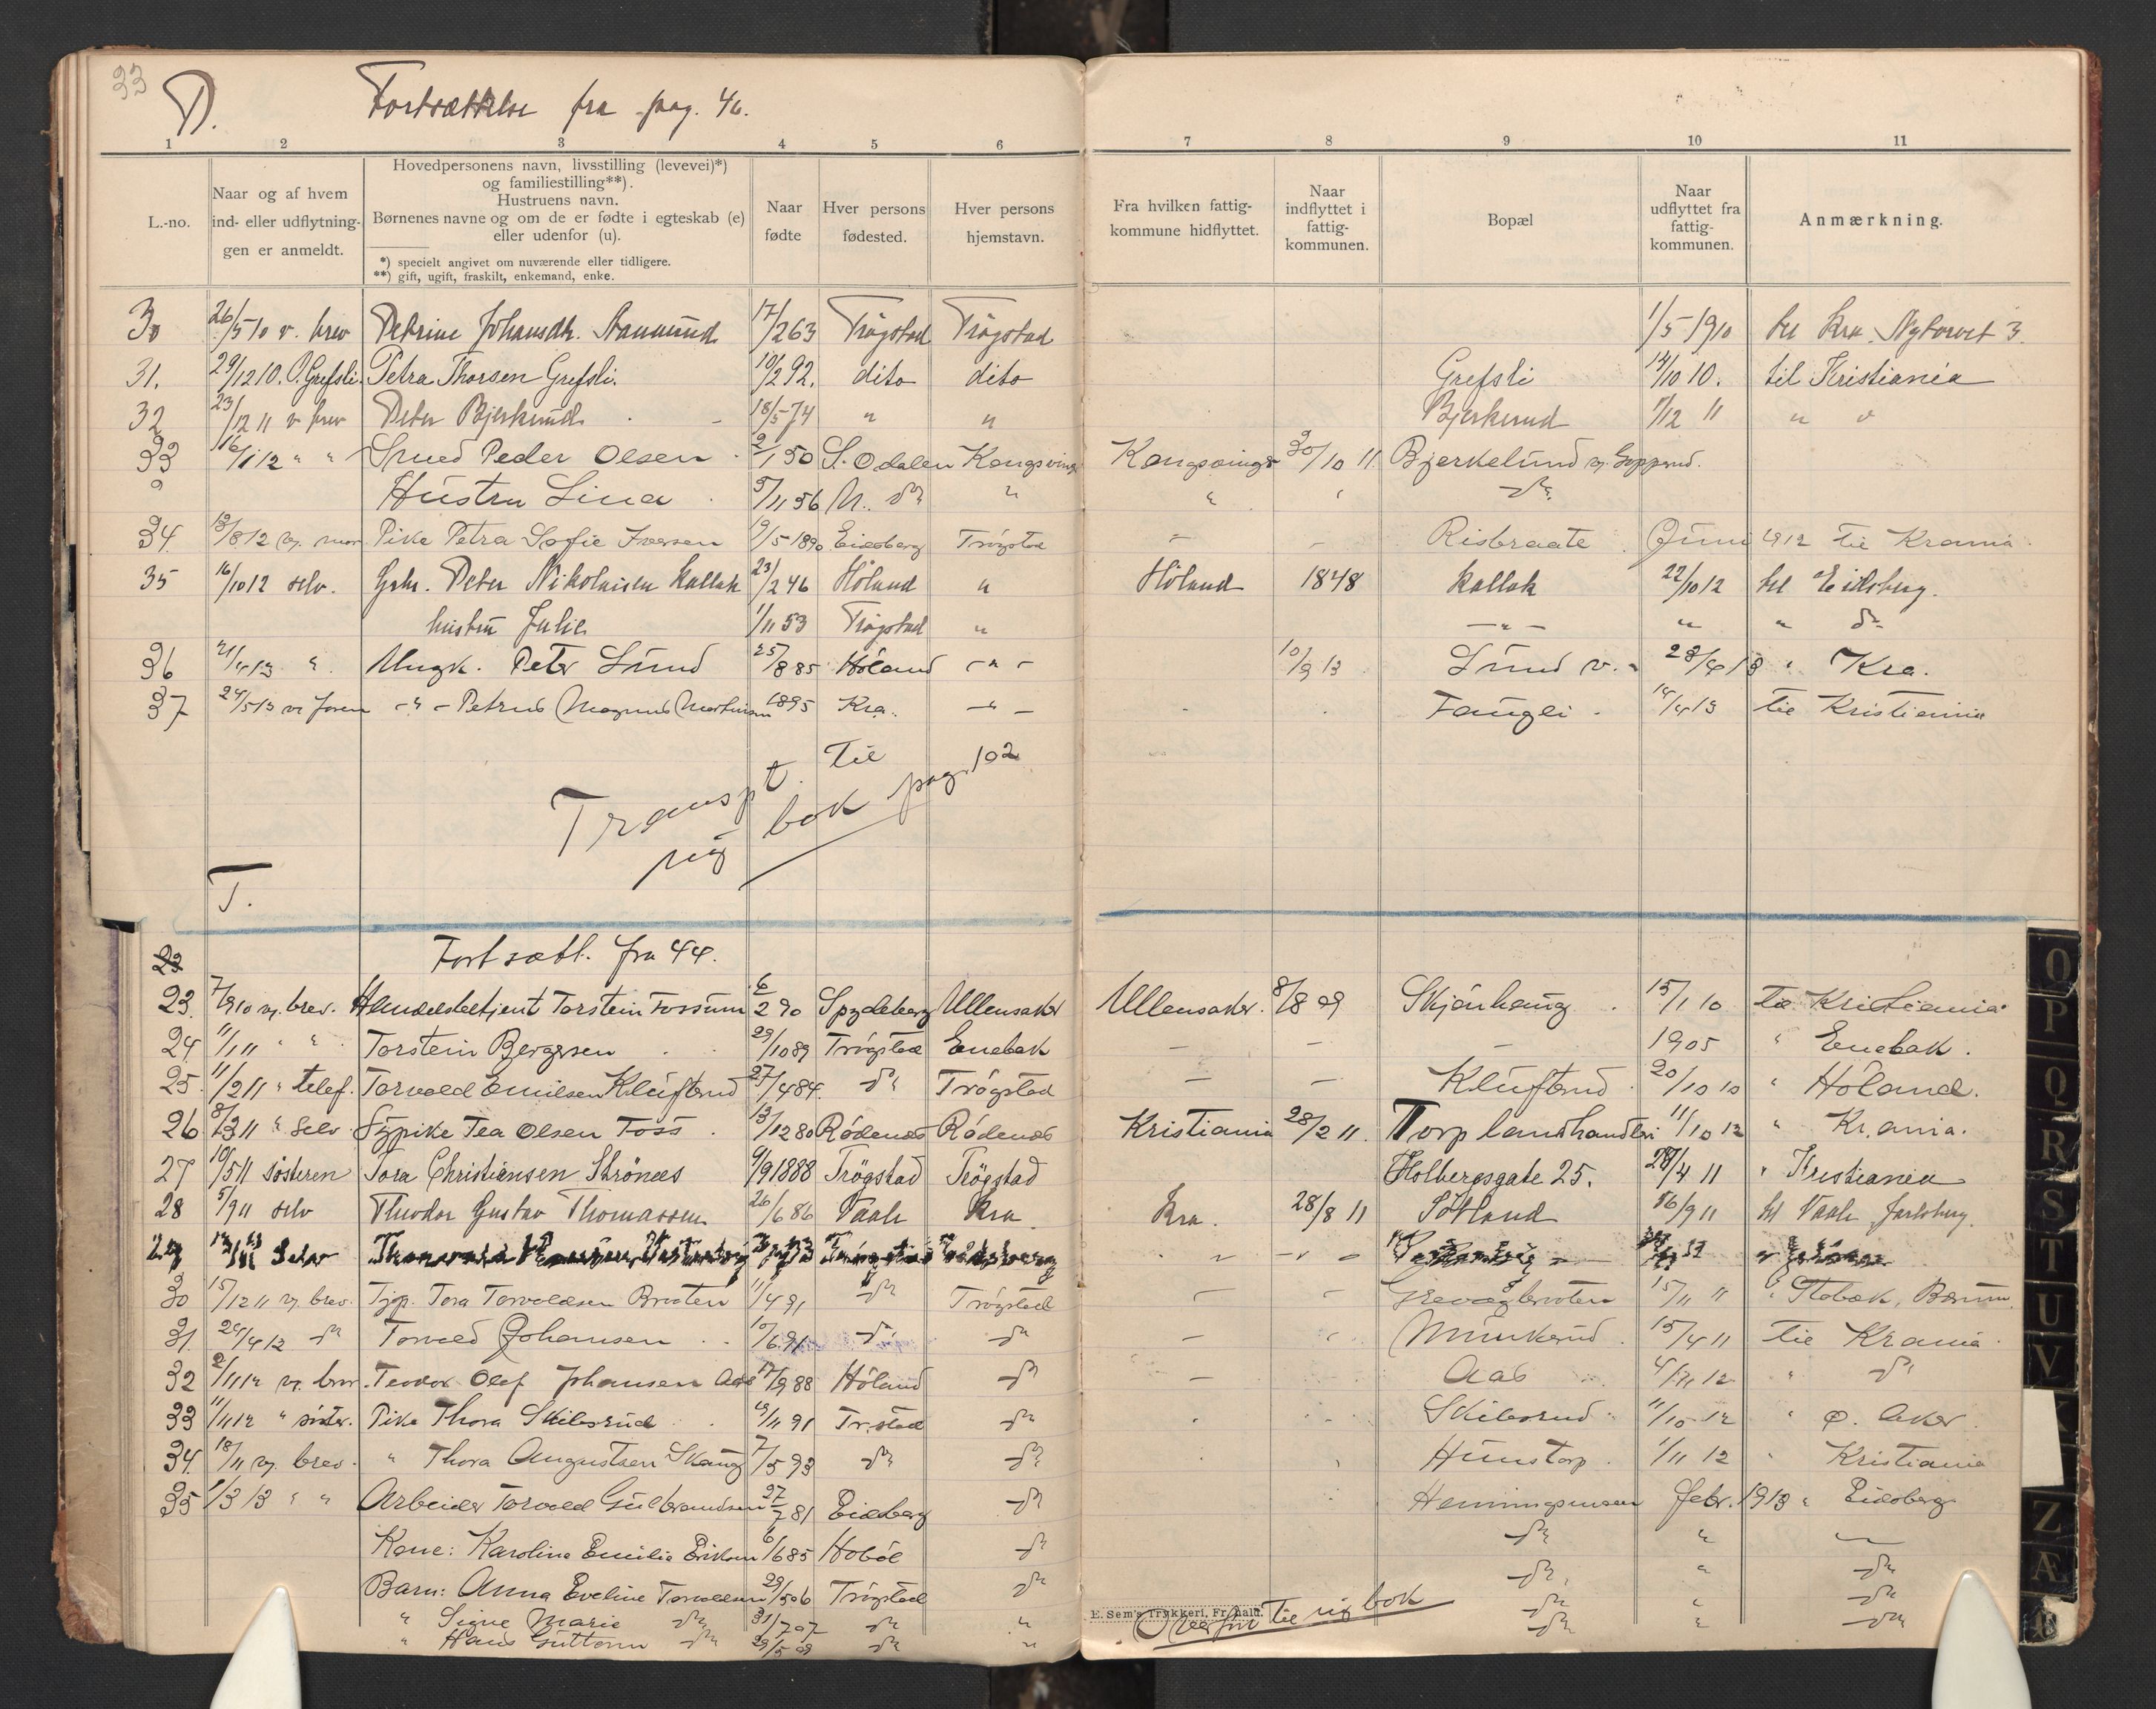 33
P. Fortsættelse fra pag. 46.
1 2 3 4 5 6 7 8 9 10 11
L.-no.
Naar og af hvem ind- eller udflytning- gen er anmeldt.
Hovedpersonens navn, livsstilling (levevei)*)
og familiestilling**).
Hustruens navn.
Børnenes navne og om de er fødte i egteskab (e)
eller udenfor (u).
*) specielt angivet om nuværende eller tidligere.
**) gift, ugift, fraskilt, enkemand, enke.
Naar fødte
Hver persons fødested.
Hver persons hjemstavn.
Fra hvilken fattig- kommune hidflyttet.
Naar indflyttet i fattig- kommunen.
Bopæl
Naar udflyttet fra fattig- kommunen.
Anmærkning.
30 26/5 10 v. brev Petrine Johansdtr. 17/2 63 Trøgstad Trøgstad 1/5 1910 til Kra. Nytorvet 3.
31. 29/12 10. O. Grefsli. Petra Thorsen Grefsli. 10/2 92. dito dito Grefsli 14/10 10. til Kristiania
32 23/12 11 v brev Peter Bjerkerud 18/5 74 " " Bjerkerud 1/12 11 " "
33 16/1 12 " " Smed Peder Olsen 2/1 50 S. Odalen Kongsvinger Kongsvinger 30/10 11. Bjerkelund v.
" Hustru Lina 5/11 56 N. do " " " do
34. 13/8 12 v. mor Pike Petra Sofie Iversen 19/5 1890 Eidsberg Trøgstad - - Risbraate Juni 1912 til Krania.
35 16/10 12 selv. Grbr. Peter Nikolaisen Kallak 23/2 46 Høland " Høland 1848 Kallak 22/10 12 til Eidsberg.
hustru Julie 1/11 53 Trøgstad " - " - " " do
36 21/4 13 " Ungk. Peter Lund 25/8 85 Høland - " - 10/9 13 Lund v. 28/4 13 " Kra.
37 24/5 13 v. - " - Petrus Magnus Martinsen 1895 Kra. - " - Faugli 14/4 13 til Kristiania
Transpt. til
ny bok pag. 102
T.
23 Fortsætt. fra 44.
23. 7/9 10 v. brev. Handelsbetjent Torstein Fossum 6/2 90 Spydeberg Ullensaker Ullensaker. 8/8 09 Skjønhaug 15/1 10 til Kristiania
24. 11/1 11 " " Torstein Bergersen 29/10 89 Trøgstad Enebak - - - 1905 " Enebak.
25. 11/2 11 " telef. Torvald Emilsen Klufterud 27/4 84. do Trøgstad - - Klufterud 20/10 10 " Høland.
26 8/3 11 " Selv Sypike Tea Olsen Foss 13/12 80 Rødenes Rødenes Kristiania 28/2 11. Torp landhandleri 11/10 12 " Kr.ania.
27 10/5 11 søsteren Tora Christiansen Strønes 9/9 1888 Trøgstad Trøgstad Holbergsgate 25. 28/4 11 " Kristiania
28 5/9 11 selv Theodor Gustav Thomassen 26/6 86 Vaale Kra Kra. 28/8 11 16/9 11 til Vaale Jarlsberg.
29 Selv
30 15/12 11 v. brev. Tjp. Tora Torvaldsen Broten 11/4 91 do Trøgstad - - 15/11 11 Stabæk, Bærum.
31. 29/4 12 do Torvald Johansen 10/6 91 do do - Munkerud 15/4 11 til Krania.
32 2/11 12 v. brev. Teodor Olaf Johansen Aas 17/9 88 Høland do - Aas 4/11 12 " do
33 11/11 12 " søster. Pike Thora Skilesrud 19/11 91 Tr.stad do Skilesrud 11/10 12 " Ø. Aker.
34. 18/11 v. brev. " Thora Augustsen Skaug 7/5 93 do do Hunstorp 1/11 12 " Kristiania
35 1/3 13 " " Arbeider Torvald Gulbrandsen 27/7 81 Eidsberg do Henningsmoen febr. 1913 " Eidsberg
Kone: Karoline Emilie Eriksen 6/6 85 Hobøl do do " "
Barn: Anna Eveline Torvaldsen 29/5 06 Trøgstad do do " do
" Signe Marie do 31/7 07 do " do " do
" Hans Guttorm do 29/5 09 do " do " do
E. Sem's Trykkeri, Fr.hald.
Overført til ny bok
O P Q R S T U V Z Æ